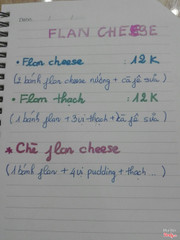 FLAN CHEESE
• Flan cheese : 12K
(2 bánh flan cheese nướng + cà fê sữa)
• Flan thạch : 12K
(1 bánh flan + 3 vị thạch + cà fê sữa)
* Chè flan cheese
(1 bánh flan + 4 vị pudding + thạch ...)